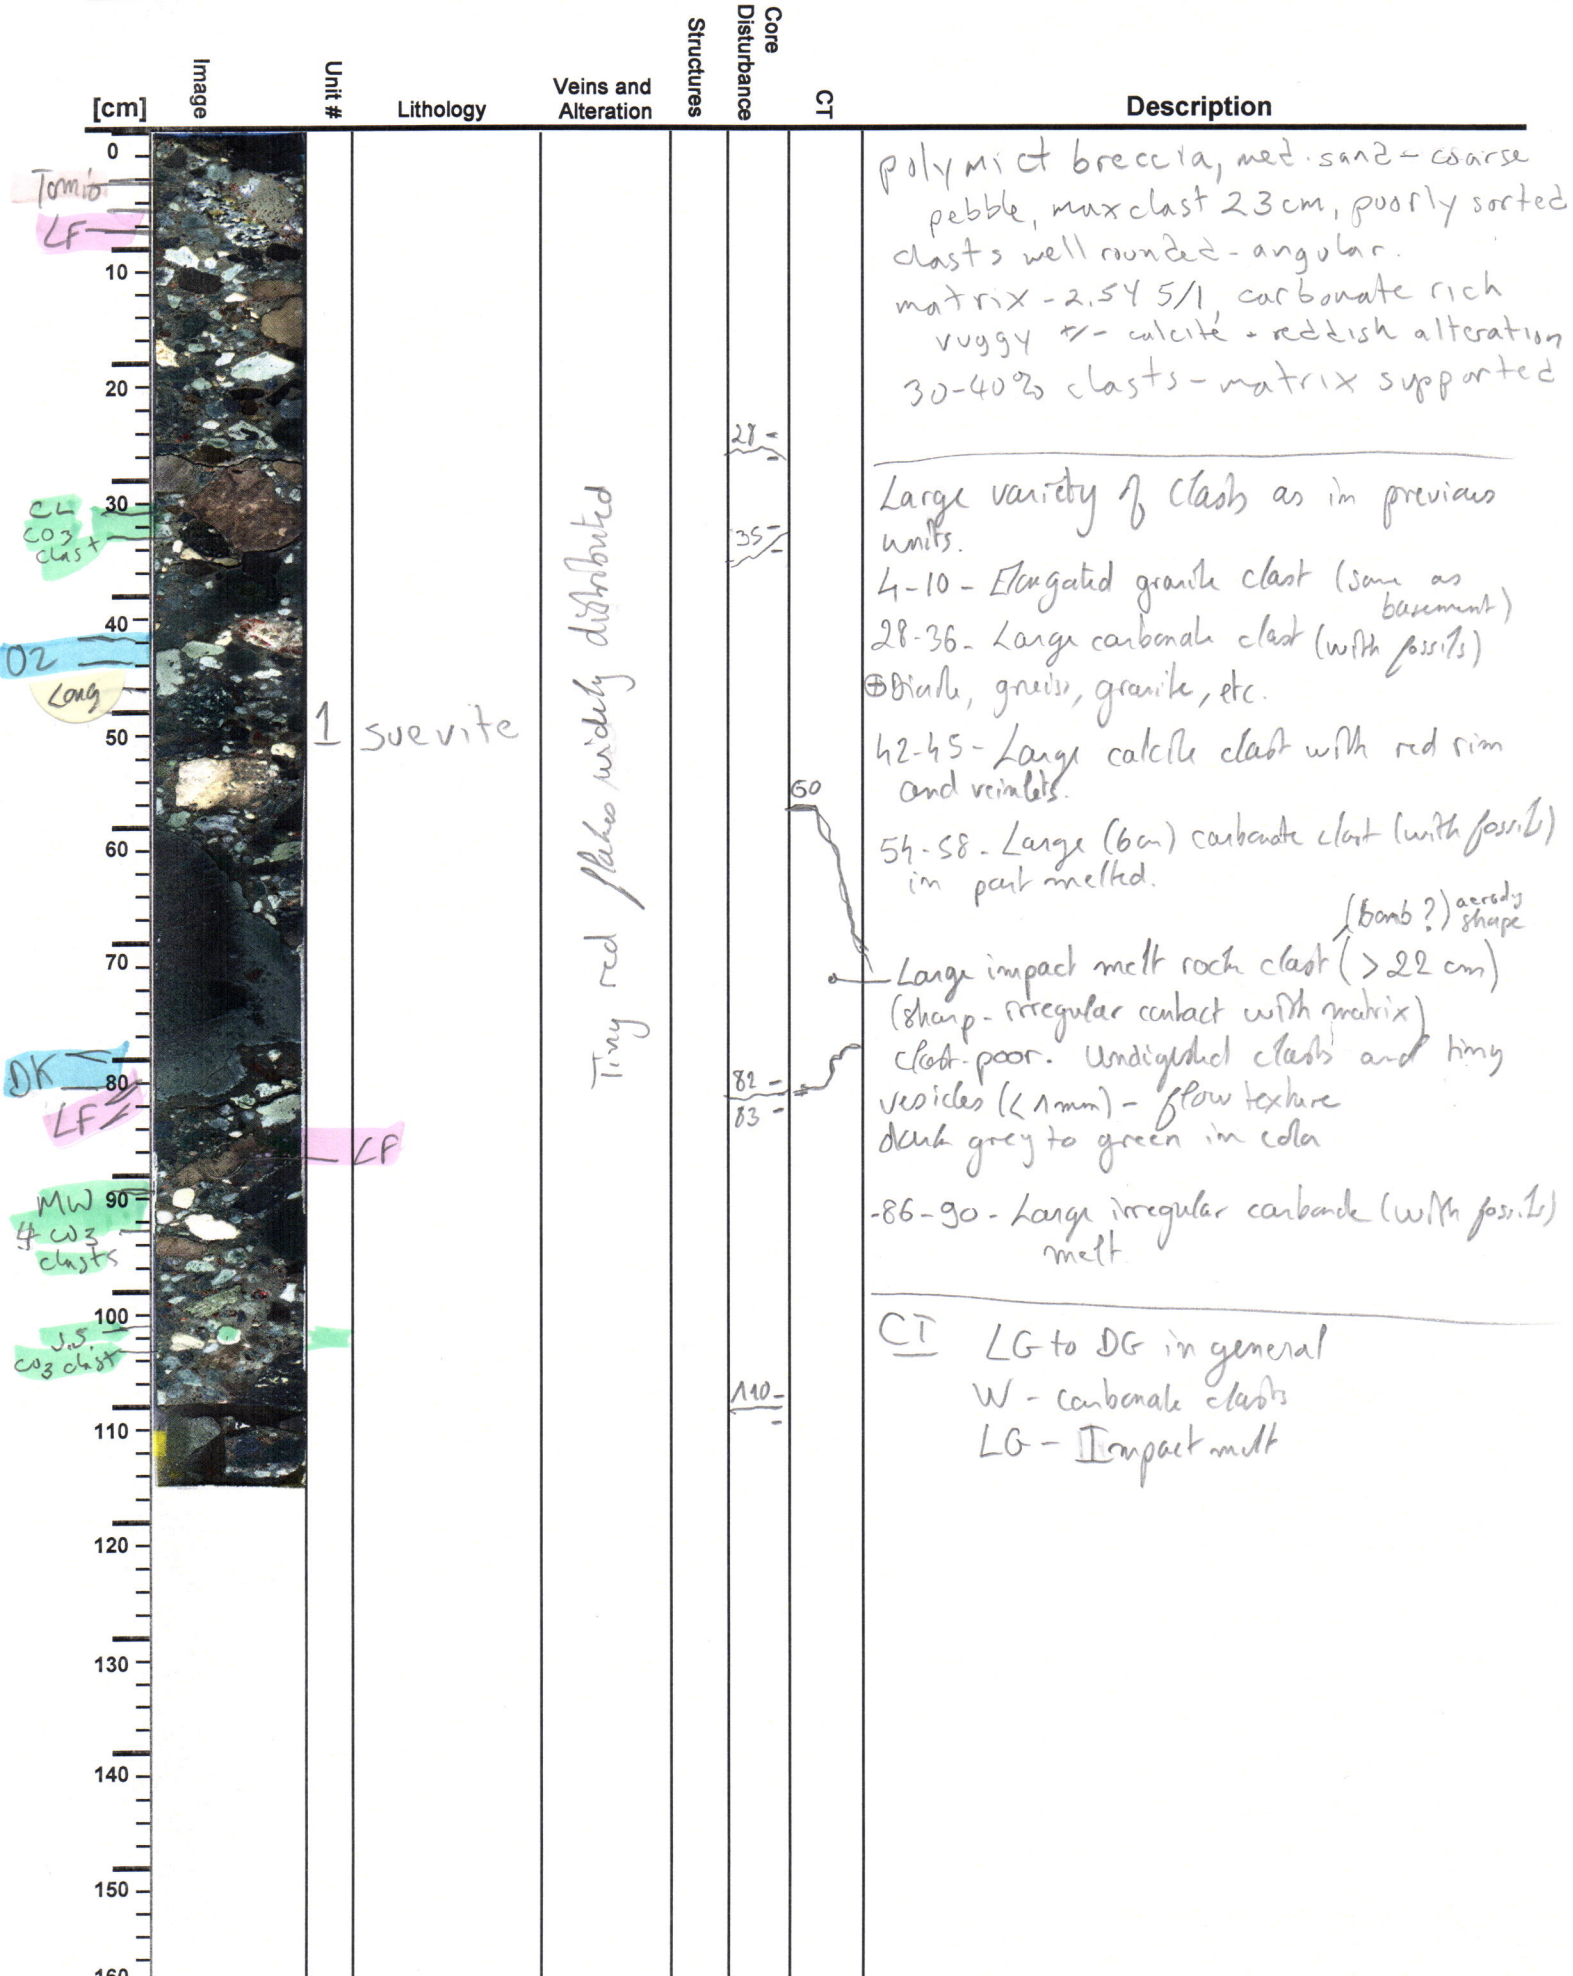 [cm]
Image
Unit #
Lithology
Veins and
Alteration
Structures
Core
Disturbance
CT
Description
0
10
20
30
40
50
60
70
80
90
100
110
120
130
140
150
160
Tomio
LF
CL
CO3
clast
O2
Long
DK
LF
LF
MW
4 CO3
clasts
J.S
CO3 clast
1
suevite
Tiny red flakes widely distributed
28
35
82
83
110
60
polymict breccia, med. sand - coarse
pebble, max clast 23cm, poorly sorted
clasts well rounded - angular.
matrix - 2.5Y 5/1, carbonate rich
vuggy +/- calcite - reddish alteration
30-40% clasts - matrix supported
Large variety of clasts as in previous
units.
4-10 - Elongated granite clast (same as
basement)
28-36 - Large carbonate clast (with fossils)
⊕ gneiss, granite, etc.
42-45 - Large calcite clast with red rim
and veinlets.
54-58 - Large (6cm) carbonate clast (with fossils)
in part melted.
(bomb?) aerody
shape
Large impact melt rock clast (>22 cm)
(sharp - irregular contact with matrix)
clast-poor. Undigested clasts and tiny
vesicles (<1mm) - flow texture
dark grey to green in color
-86-90 - Large irregular carbonate (with fossils)
melt
CT LG to DG in general
W - carbonate clasts
LG - Impact melt